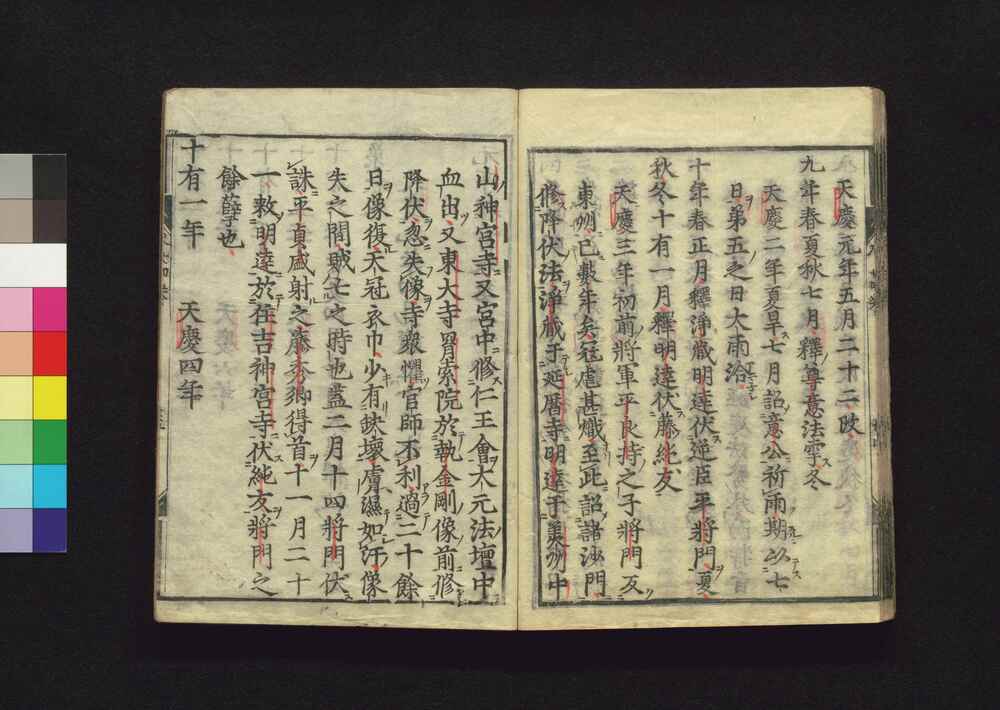 天慶元年五月二十二改
九年春夏秋七月釋尊意法雩冬
天慶二年夏旱七月詔意公祈雨期以七
日弟五之日大雨洽
十年春正月釋淨藏明達伏逆臣平將門夏
秋冬十有一月釋明達伏藤純友
天慶三年初前將軍平良持之子將門反
東州已數年矣冦虐甚熾至此詔諸沙門
修降伏法淨藏于延曆寺明達于美州中
山神宮寺又宮中修仁王會太元法壇中
血出又東大寺羂索院於執金剛像前修
降伏忽失像寺衆懼官師不利過二十餘
日像復天冠衣巾少有缺壞膚濕如汗像
失之間賊亡之時也蓋二月十四將門伏
誅平貞盛射之藤秀郷得首十一月二十
一敕明達於住吉神宮寺伏純友將門之
餘孽也
十有一年　天慶四年